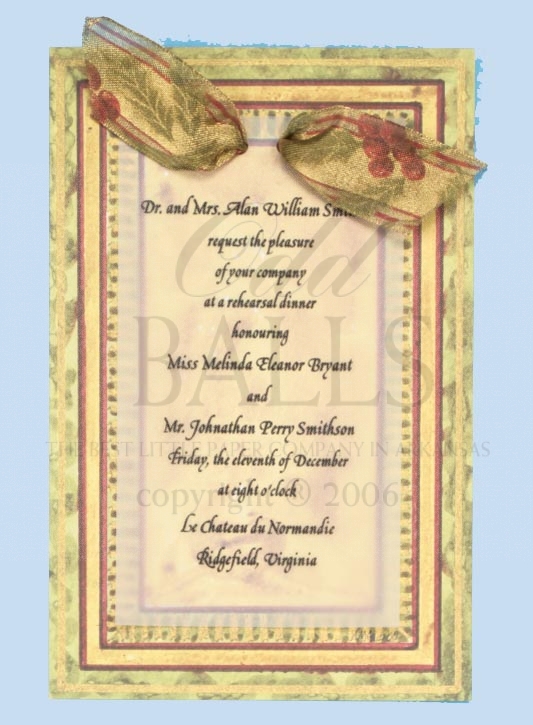 Dr. and Mrs. Alan William
request the pleasure
of your company
at a rehearsal dinner
honouring
Miss Melinda Eleanor Bryant
and
Mr. Johnathan Perry Smithson
Friday, the eleventh of December
at eight o'clock
Le Chateau du Normandie
Ridgefield, Virginia
Odd
BALLS
THE BEST LITTLE PAPER COMPANY IN ARKANSAS
copyright ® 2006